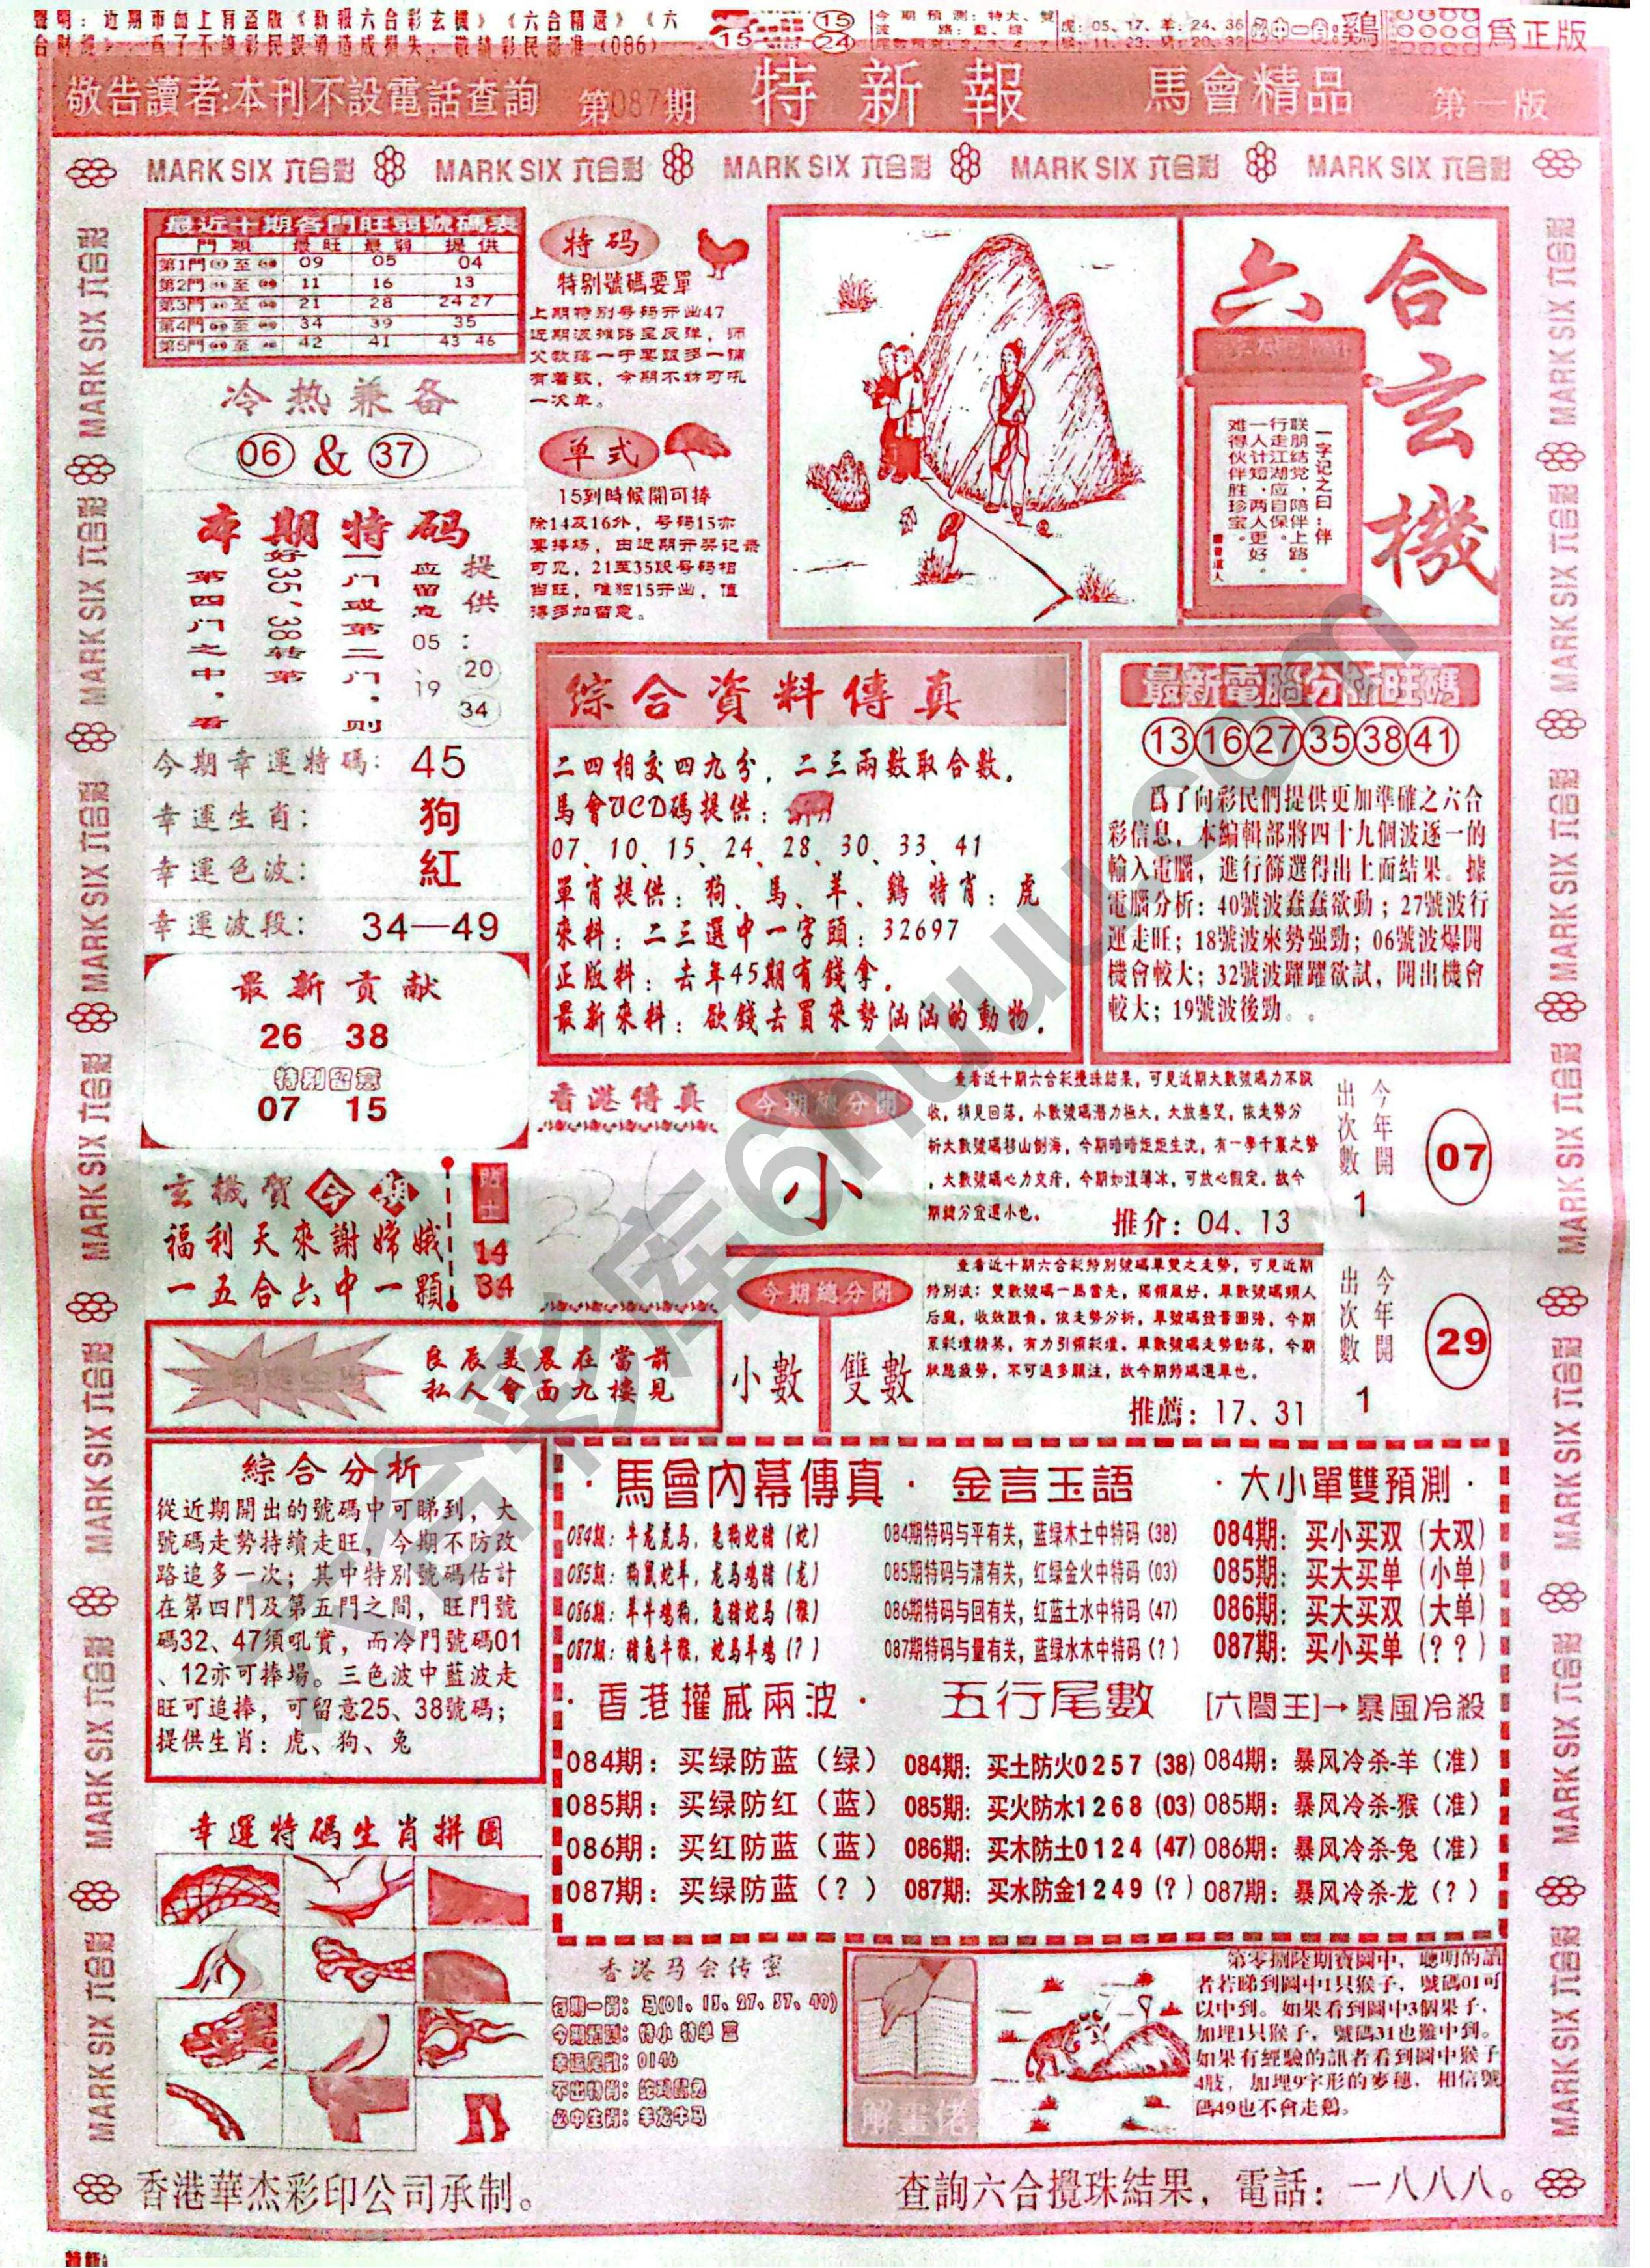 聲明：近期市面上有盜版《新報六合彩玄機》《六合精選》《六
(086)
15
24
今期預測：特大、雙
波路：藍、綠
虎：05、17、羊：24、36
爲正版
敬告讀者:本刊不設電話查詢
第087期
特新報
馬會精品
第一版
MARK SIX 六合彩 MARK SIX 六合彩 MARK SIX 六合彩 MARK SIX 六合彩 MARK SIX 六合彩
最近十期各門旺弱號碼表
門類 最旺 最弱 提供
第1門 至 09 05 04
第2門 至 11 16 13
第3門 至 21 28 24 27
第4門 至 34 39 35
第5門 至 42 41 43 46
冷热兼备
06 & 37
本期特码
第四门之中，看
好35、38转第
一门或第二门，则
应留意05、19
提供：20
34
今期幸運特碼：45
幸運生肖：狗
幸運色波：紅
幸運波段：34—49
最新贡献
26 38
特别留意
07 15
特码
特别號碼要單
上期特别号码开出47
近期波摊路呈反弹，师
有着数，今期不妨可吼
一次单。
单式
15到時候開可捧
除14及16外，号码15亦
要捧场，由近期开奖记录
可见，21至35段号码相
当旺，唯独15开出，值
得多加留意。
六合玄機
一字记之曰：伴
联朋结党，陪伴上路。
行走江湖应自保。
一人计短，两人更好。
难得伙伴胜珍宝。
綜合資料傳真
二四相交四九分，二三兩數取合數。
馬會UCD碼提供：
07、10、15、24、28、30、33、41
單肖提供：狗、馬、羊、鷄 特肖：虎
來料：二三選中一字頭：32697
正版料：去年45期有錢拿。
最新來料：欲錢去買來勢汹汹的動物。
最新電腦分析旺碼
13 16 27 35 38 41
爲了向彩民們提供更加準確之六合
彩信息，本編輯部將四十九個波逐一的
輸入電腦，進行篩選得出上面結果。據
電腦分析：40號波蠢蠢欲動；27號波行
運走旺；18號波來勢强勁；06號波爆開
機會較大；32號波躍躍欲試，開出機會
較大；19號波後勁。。
香港傳真
今期總分開
小
查看近十期六合彩攪珠結果，可見近期大數號碼力不厭
收，稍見回落。小數號碼潜力極大，大放憙望，依走勢分
析大數號碼移山倒海，今期暗暗炬炬生沈，有一學千裏之勢
，大數號碼心力交瘁，今期如漟薄冰，可放心假定。故今
期總分宜選小也。
推介：04、13
今年開
出次數
1
07
玄機賀今期
福利天來謝嫦娥
一五合六中一顆
貼士
14
34
今期總分開
小數 雙數
查看近十期六合彩特別號碼單雙之走勢，可見近期
特別波：雙數號碼一馬當先，獨領風好。單數號碼頻人
后塵，收效甚負。依走勢分析，單號碼發奮圖强，今期
泵彩壇精英，有力引領彩壇。單數號碼走勢動落，今期
狀態疲勢，不可過多關注，故今期特碼選單也。
推薦：17、31
今年開
出次數
1
29
良辰美景在當前
私人會面九樓見
綜合分析
從近期開出的號碼中可睇到，大
號碼走勢持續走旺，今期不防改
路追多一次；其中特別號碼估計
在第四門及第五門之間，旺門號
碼32、47須吼實，而冷門號碼01
、12亦可捧場。三色波中藍波走
旺可追捧，可留意25、38號碼；
提供生肖：虎、狗、兔
·馬會内幕傳真·
084期：牛龙虎马，兔狗蛇猪（蛇）
085期：狗鼠蛇羊，龙马鸡猪（龙）
086期：羊牛鸡狗，兔猪蛇马（猴）
087期：猪兔牛猴，蛇马羊鸡（？）
金言玉語
084期特码与平有关，蓝绿木土中特码（38）
085期特码与清有关，红绿金火中特码（03）
086期特码与回有关，红蓝土水中特码（47）
087期特码与量有关，蓝绿水木中特码（？）
·大小單雙預測·
084期：买小买双（大双）
085期：买大买单（小单）
086期：买大买双（大单）
087期：买小买单（？？）
·香港權威兩波·
084期：买绿防蓝（绿）
085期：买绿防红（蓝）
086期：买红防蓝（蓝）
087期：买绿防蓝（？）
五行尾數
084期：买土防火0257（38）
085期：买火防水1268（03）
086期：买木防土0124（47）
087期：买水防金1249（？）
[六閤王]→暴風冷殺
084期：暴风冷杀-羊（准）
085期：暴风冷杀-猴（准）
086期：暴风冷杀-兔（准）
087期：暴风冷杀-龙（？）
幸運特碼生肖拼圖
香港马会传密
每期一肖：马(01、13、27、37、49)
今期预测：特小 特单 蓝
幸运尾数：0146
必中生肖：羊龙牛马
解畫佬
第零捌陸期寶圖中，聰明的讀
者若睇到圖中1只猴子，號碼01可
以中到。如果看到圖中3個果子，
加埋1只猴子，號碼31也難中到。
如果有經驗的讀者看到圖中猴子
4肢，加埋9字形的麥穗，相信號
碼49也不會走鷄。
香港華杰彩印公司承制。
查詢六合攪珠結果，電話：一八八八。
六合彩库6huuu.com